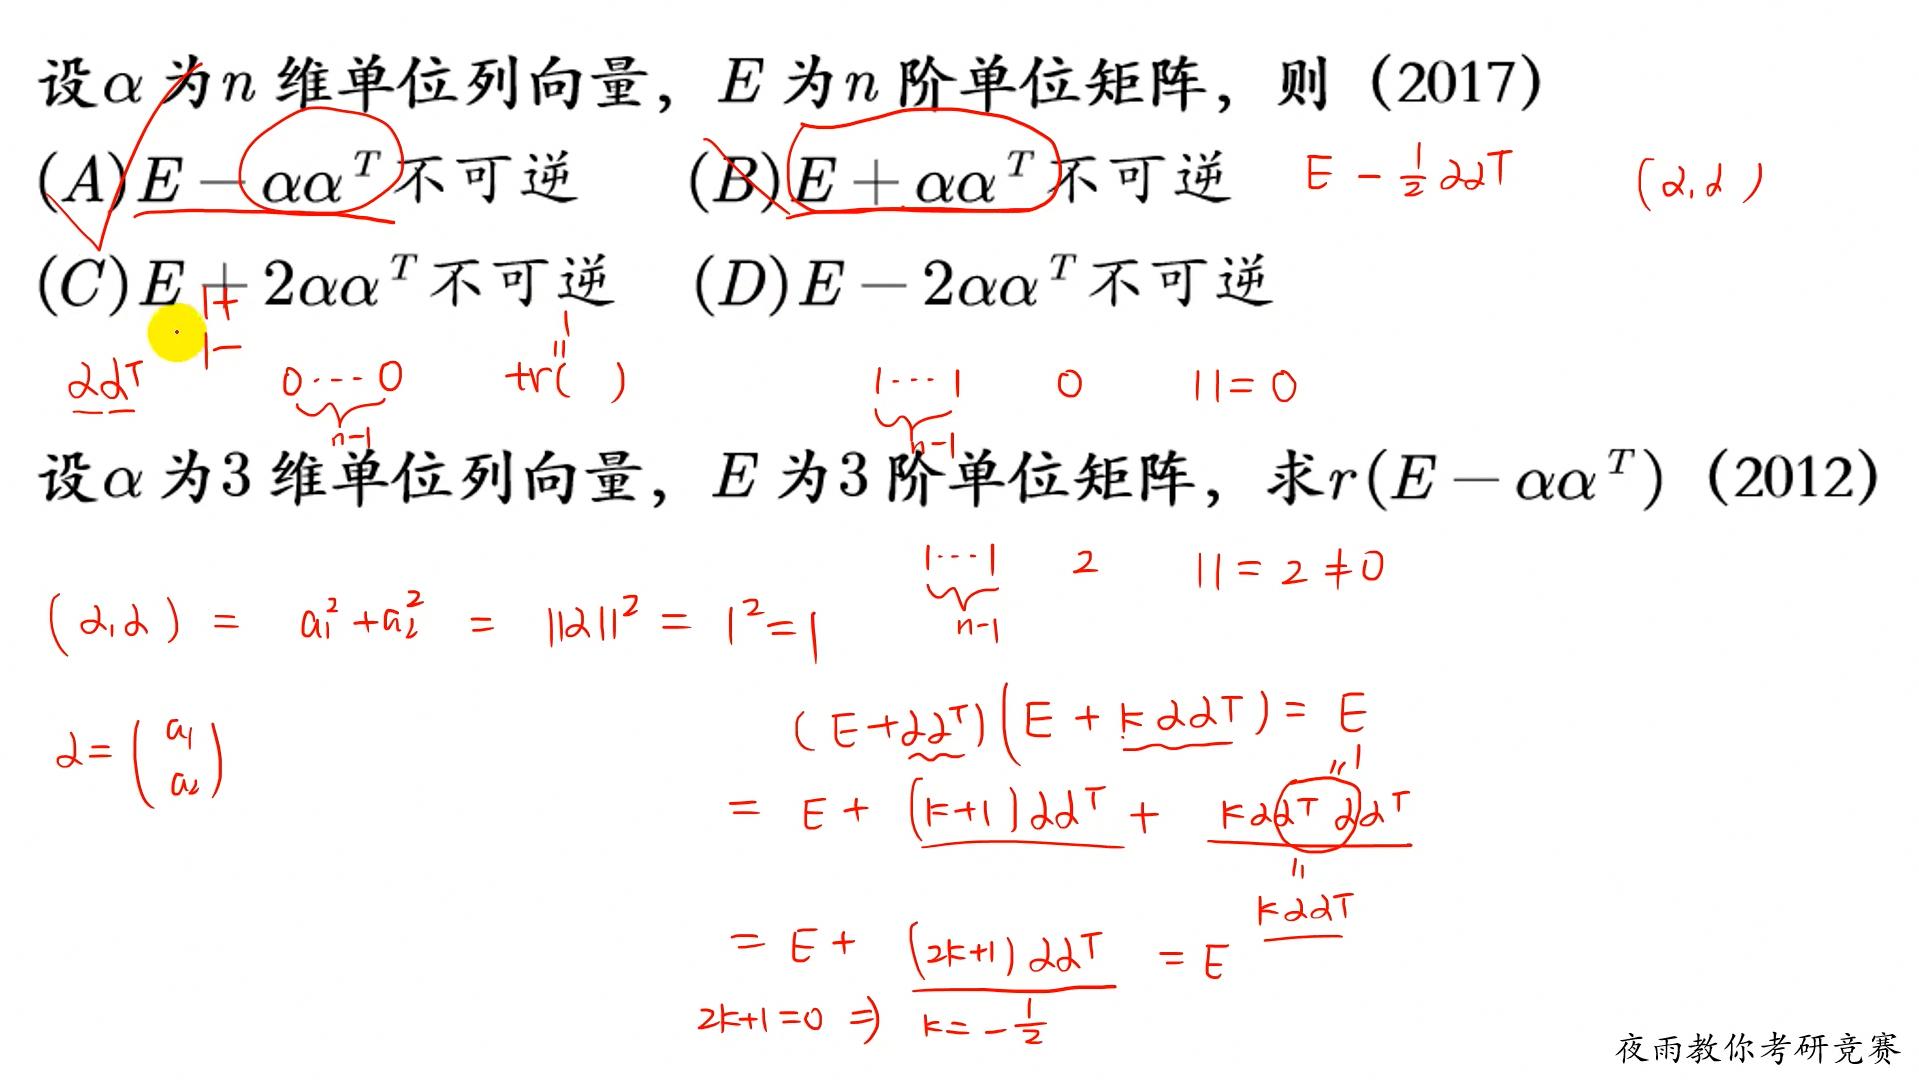 设α为n维单位列向量，E为n阶单位矩阵，则（2017）
(A)E－αα^T不可逆 (B)E＋αα^T不可逆 E - 1/2 αα^T (α,α)
(C)E＋2αα^T不可逆 (D)E－2αα^T不可逆
1+
1-
αα^T 0···0 tr( ) 1···1 0 | |=0
n-1 = 1 n-1
设α为3维单位列向量，E为3阶单位矩阵，求r(E－αα^T)（2012）
1···1 2 | |=2≠0
n-1
(α,α) = a₁²+a₂² = ||α||² = 1²=1
α= (a₁ a₂)
(E+αα^T)(E+kαα^T)= E
= E+ (k+1)αα^T + kαα^Tαα^T
= 1
= kαα^T
= E+ (2k+1)αα^T = E
2k+1=0 ⇒ k=-1/2
夜雨教你考研竞赛